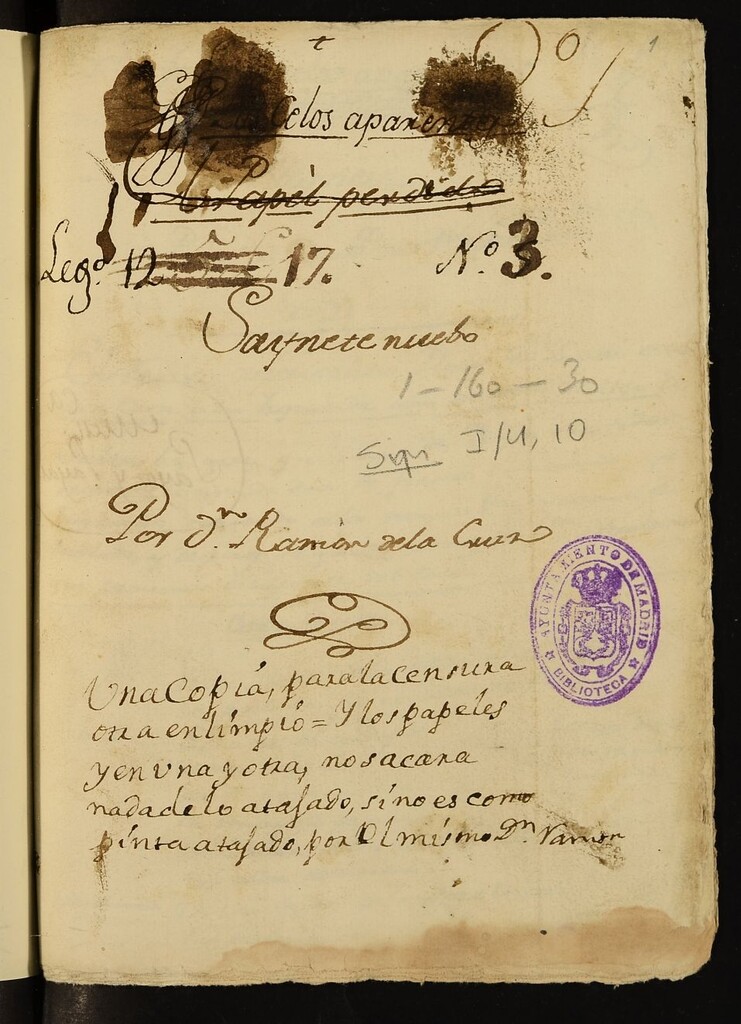 +
1
Celos aparen
Papel perdido
Leg.º 12 17. N.º 3.
Saynete nuebo
1-160-30
I/4, 10
Por d.n Ramon dela Cruz
AYUNTAMIENTO DE MADRID
BIBLIOTECA
Una Copiá, para la censura
otra en límpio = Y los papeles
y en una y otra, no sacara
nada de lo atajado, síno es como
pínta atajado, por el mísmo Dn. Ramon